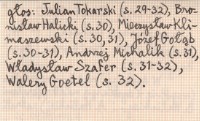 głos: Julian Tokarski (s. 29-32), Bro-
nisław Halicki (s. 30), Mieczysław Kli-
maszewski (s. 30, 31), Józef Gołąb
(s. 30-31), Andrzej Michalik (s. 31),
Władysław Szafer (s. 31-32),
Walery Goetel (s. 32).